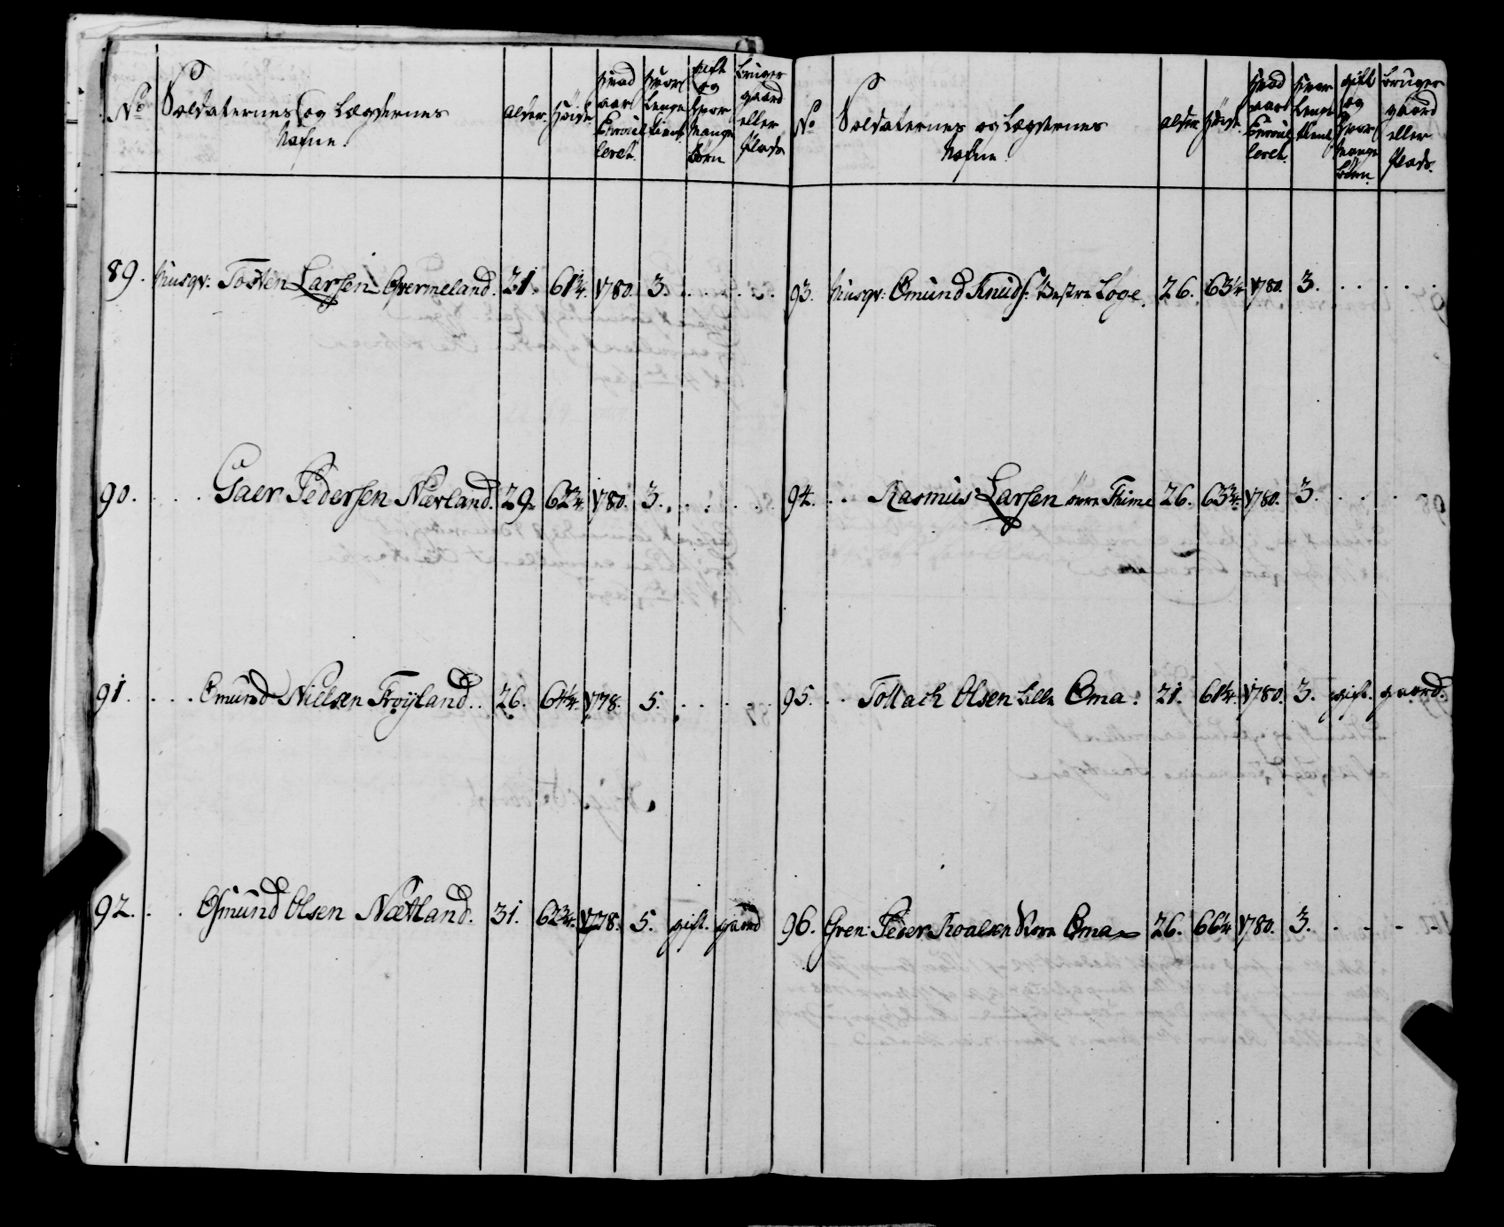 No
Soldaternes og Lægdernes
Nafne.
alder.
Høide
Hvad
aar
Enroul
leret.
Hvor
Lenge
tient.
gift
og
Hvor
Mange
Børn
Bruger
gaard
eller
Plads
89. Musqr: Tosten Larsen Qvermeland. 31. 61¾. 1780. 3. . . . .
90. . . . Gaer Pedersen Nærland. 29. 62¾. 1780. 3. . . . .
91. . . . Omund Nielsen Frøyland. . 26. 61¼. 1778. 5. . . . .
92. . . Osmund Olsen Nætland. 31. 62¾. 1778. 5. gift. gaard
No
Soldaternes og Lægdernes
Nafne.
alder
Høide.
Hvad
aar
Enroul
leret.
Hvor
Lenge
tient.
gift
og
Hvor
Mange
Børn.
Bruger
gaard
eller
Plads.
93. Musqr: Omund Knuds: Vestre Loge. 26. 63¼ 1780. 3. . . . .
94. . . Rasmus Larsen øvre Thime 26. 63¾. 1780. 3. . . .
95. . . Tollach Olsen Lille Oma. 21. 61¼. 1780. 3. gift. gaard.
96. Gren: Peder Roalsen Store Oma 26. 66¼ 1780. 3. . . . .